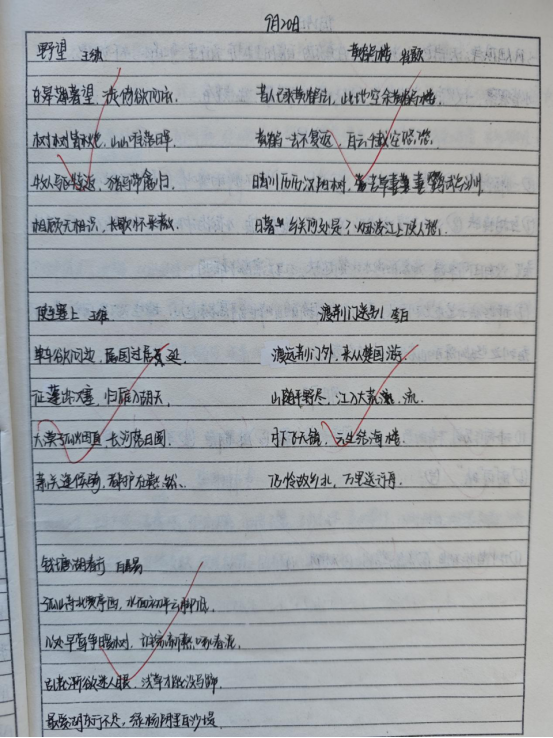 9月20日
野望 王绩
东皋薄暮望,徙倚欲何依.
树树皆秋色,山山唯落晖.
牧人驱犊返,猎马带禽归.
相顾无相识,长歌怀采薇.
黄鹤楼 崔颢
昔人已乘黄鹤去,此地空余黄鹤楼.
黄鹤一去不复返,白云千载空悠悠.
晴川历历汉阳树,萋萋鹦鹉洲.
日暮乡关何处是?烟波江上使人愁.
使至塞上 王维
单车欲问边,属国过居延.
征蓬出汉塞,归雁入胡天.
大漠孤烟直,长河落日圆.
萧关逢候骑,都护在燕然.
渡荆门送别 李白
渡远荆门外,来从楚国游.
山随平野尽,江入大荒流.
月下飞天镜,云生结海楼.
仍怜故乡水,万里送行舟.
钱塘湖春行 白居易
孤山寺北贾亭西,水面初平云脚低.
几处早莺争暖树,谁家新燕啄春泥.
乱花渐欲迷人眼,浅草才能没马蹄.
最爱湖东行不足,绿杨阴里白沙堤.